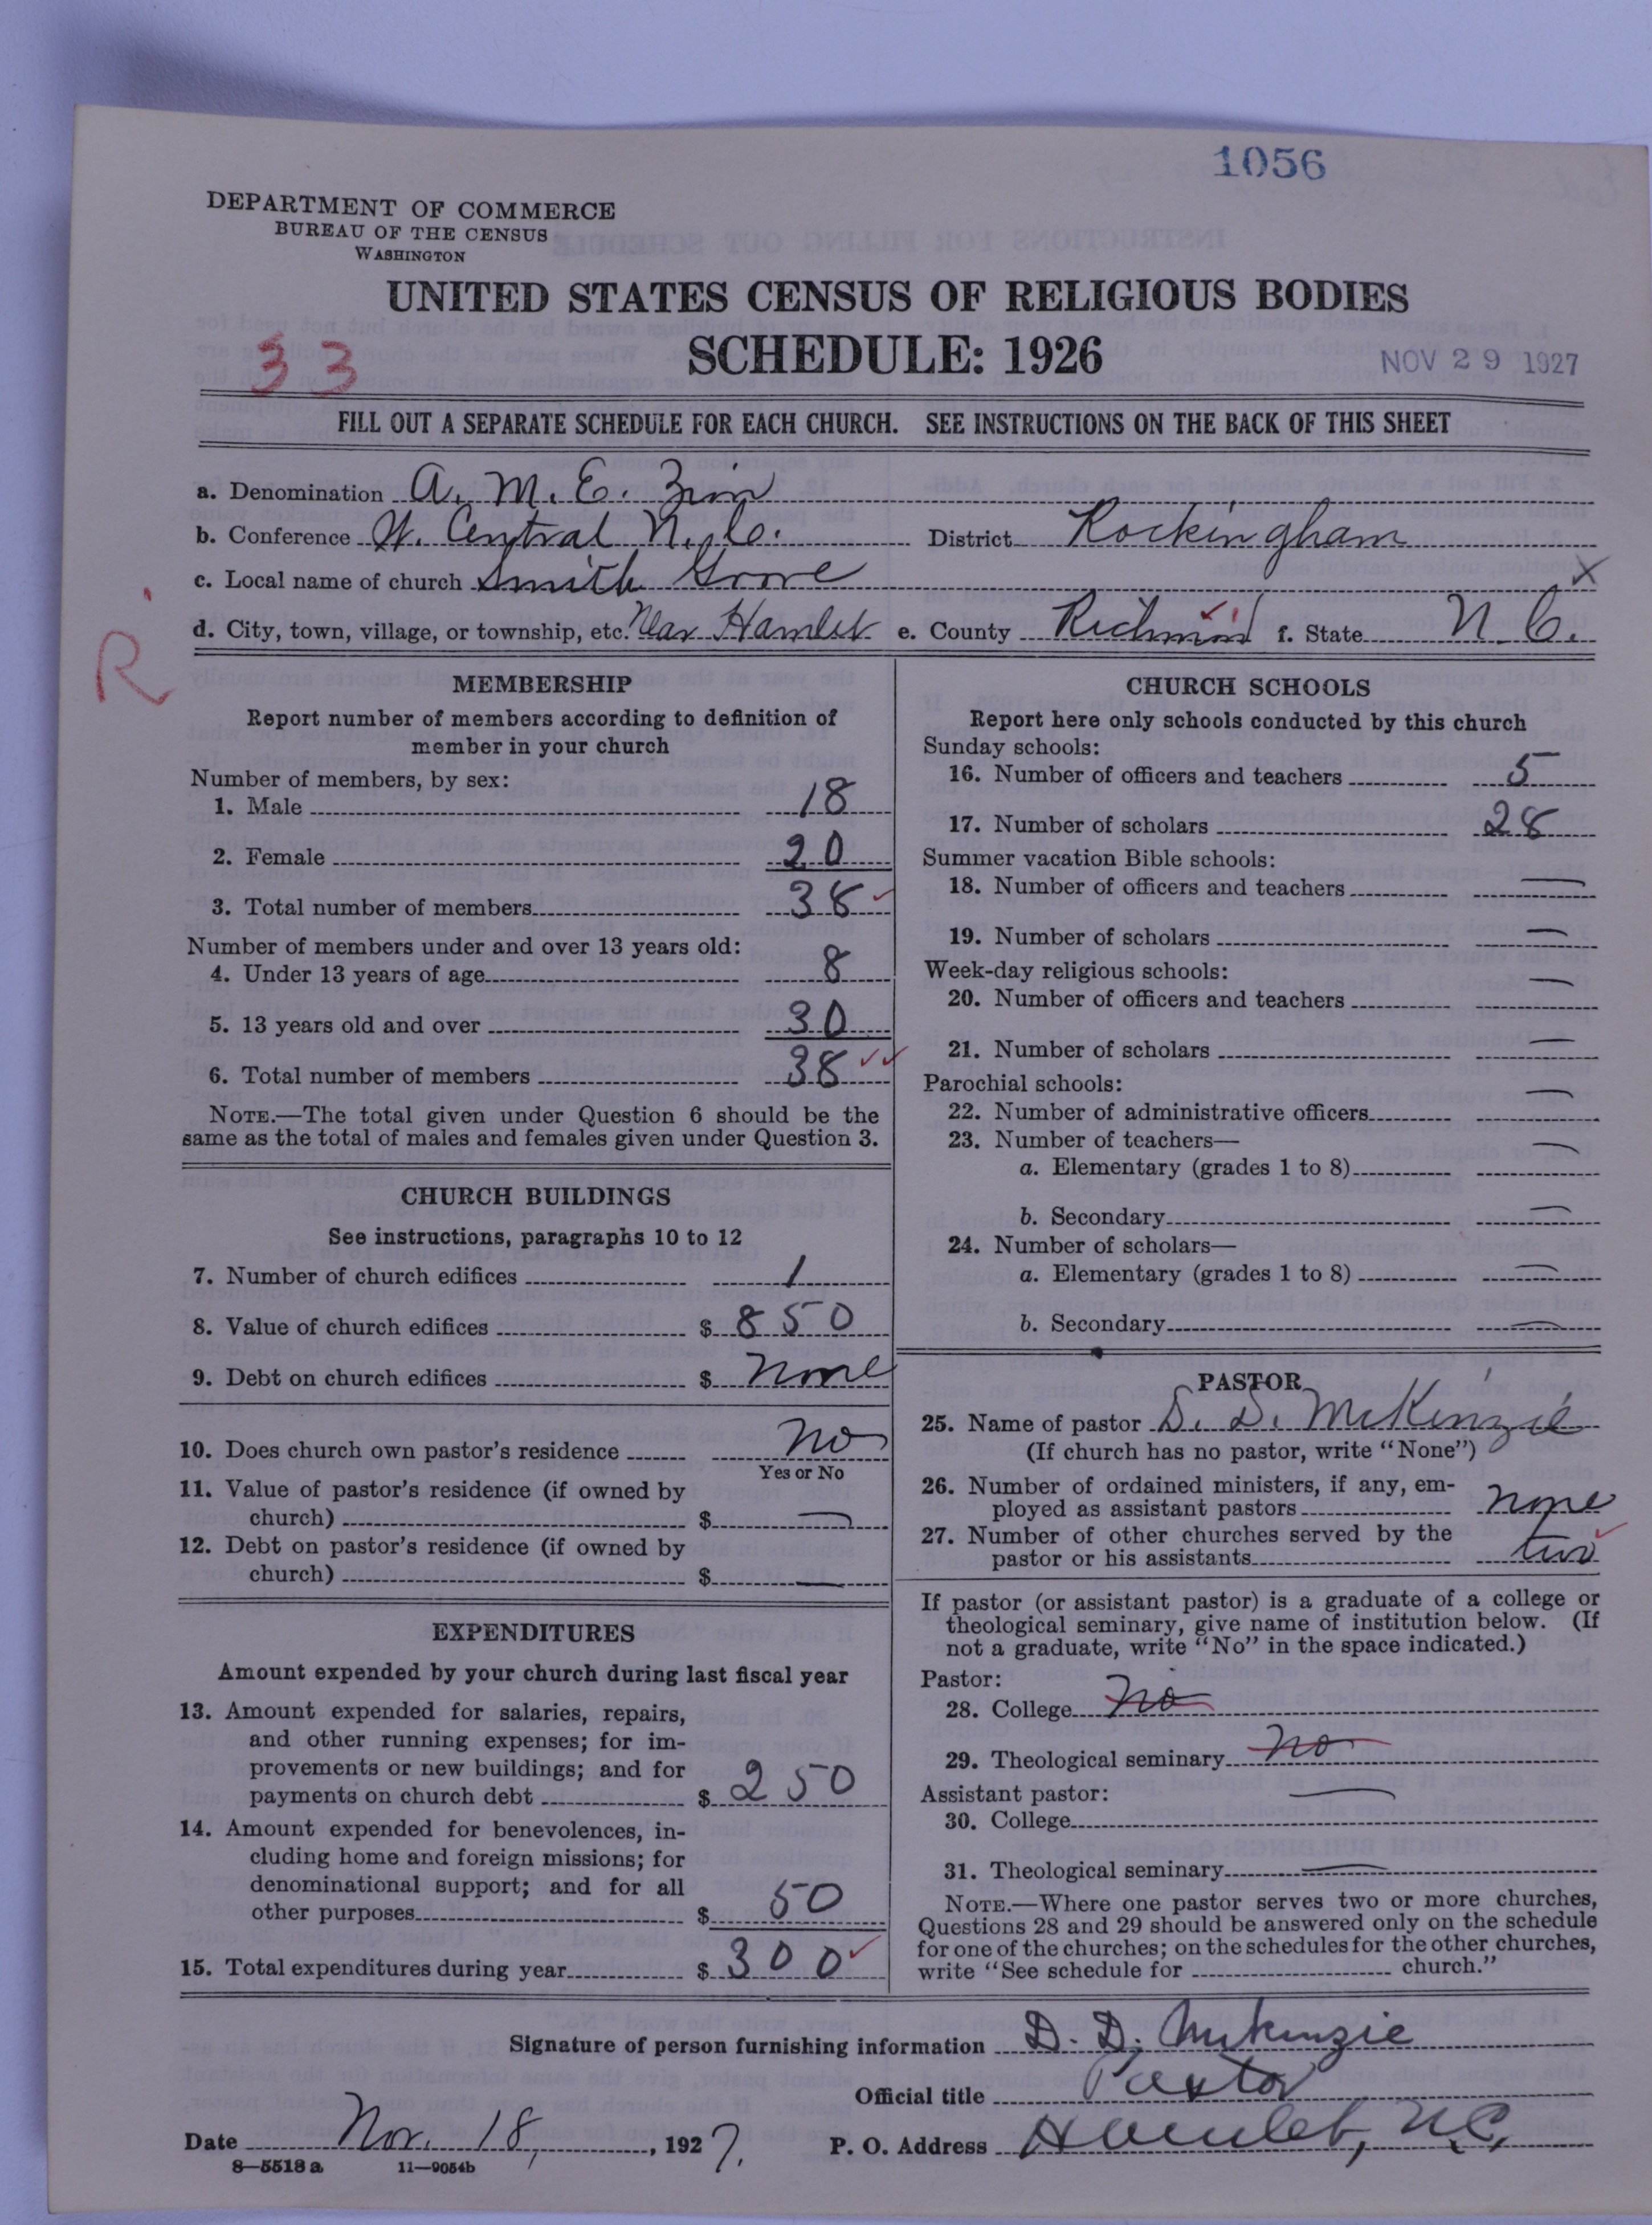 1056
DEPARTMENT OF COMMERCE
BUREAU OF THE CENSUS
WASHINGTON
UNITED STATES CENSUS OF RELIGIOUS BODIES
SCHEDULE: 1926
33
NOV 29 1927
FILL OUT A SEPARATE SCHEDULE FOR EACH CHURCH. SEE INSTRUCTIONS ON THE BACK OF THIS SHEET
a. Denomination A. M. E. Zion
b. Conference W. Central N. C. District Rockingham
c. Local name of church Smith Grove X
d. City, town, village, or township, etc. Near Hamlet e. County Richmond f. State N. C.
R
MEMBERSHIP
Report number of members according to definition of
member in your church
Number of members, by sex:
1. Male 18
2. Female 20
3. Total number of members 38
Number of members under and over 13 years old:
4. Under 13 years of age 8
5. 13 years old and over 30
6. Total number of members 38
NOTE.—The total given under Question 6 should be the
same as the total of males and females given under Question 3.
CHURCH BUILDINGS
See instructions, paragraphs 10 to 12
7. Number of church edifices 1
8. Value of church edifices $ 850
9. Debt on church edifices $ none
10. Does church own pastor's residence no
Yes or No
11. Value of pastor's residence (if owned by
church) $ —
12. Debt on pastor's residence (if owned by
church) $ —
EXPENDITURES
Amount expended by your church during last fiscal year
13. Amount expended for salaries, repairs,
and other running expenses; for im-
provements or new buildings; and for
payments on church debt $ 250
14. Amount expended for benevolences, in-
cluding home and foreign missions; for
denominational support; and for all
other purposes $ 50
15. Total expenditures during year $ 300
CHURCH SCHOOLS
Report here only schools conducted by this church
Sunday schools:
16. Number of officers and teachers 5
17. Number of scholars 28
Summer vacation Bible schools:
18. Number of officers and teachers —
19. Number of scholars —
Week-day religious schools:
20. Number of officers and teachers —
21. Number of scholars —
Parochial schools:
22. Number of administrative officers —
23. Number of teachers—
a. Elementary (grades 1 to 8) —
b. Secondary —
24. Number of scholars—
a. Elementary (grades 1 to 8) —
b. Secondary —
PASTOR
25. Name of pastor D. D. McKenzie
(If church has no pastor, write "None")
26. Number of ordained ministers, if any, em-
ployed as assistant pastors none
27. Number of other churches served by the
pastor or his assistants two
If pastor (or assistant pastor) is a graduate of a college or
theological seminary, give name of institution below. (If
not a graduate, write "No" in the space indicated.)
Pastor:
28. College no
29. Theological seminary no
Assistant pastor: —
30. College
31. Theological seminary —
NOTE.—Where one pastor serves two or more churches,
Questions 28 and 29 should be answered only on the schedule
for one of the churches; on the schedules for the other churches,
write "See schedule for church."
Signature of person furnishing information D. D. McKenzie
Official title Pastor
Date Nov. 18, 1927. P. O. Address Hamlet, N.C.
8—5518 a 11—9054b